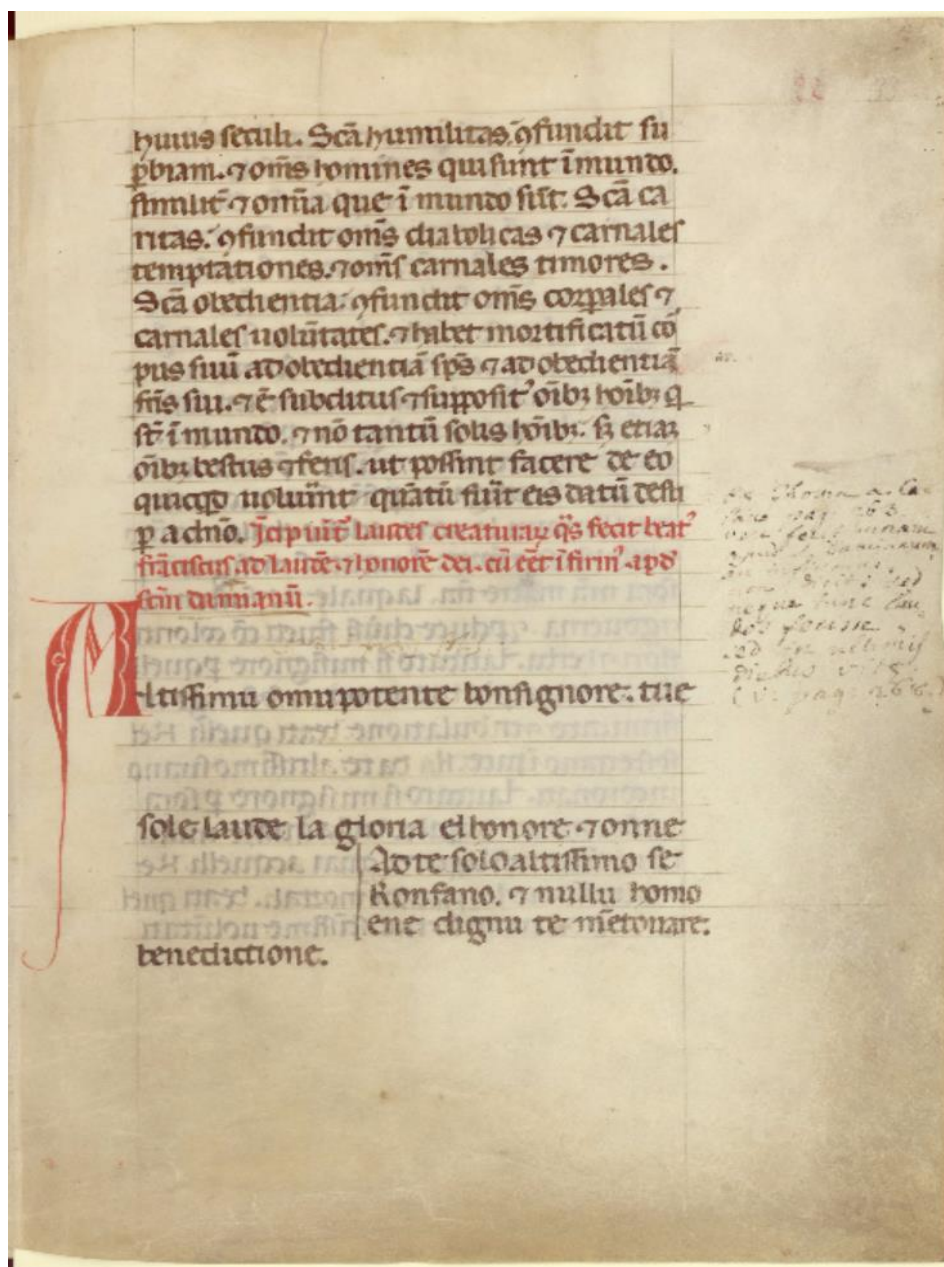 huius seculi. Scā humilitas ꝯfundit su
ꝑbiam. ⁊ om̄s homines qui sunt ī mundo.
similit̄ ⁊ om̄ia que ī mundo sūt. Scā ca
ritas. ꝯfundit om̄s diabolicas ⁊ carnales
temptationes. ⁊ om̄s carnales timores.
Scā obedientia. ꝯfundit om̄s corꝑales ⁊
carnales uolūtates. ⁊ habet mortificatū cor̄
pus suū ad obedientiā sp̄s ⁊ ad obedientiā
fr̄is sui. ⁊ ē subditus ⁊ supposit᾽ oīb; hoīb; q̄
st̄ ī mundo. ⁊ nō tantū solis hoīb;. s; etiaꝫ
oīb; bestiis ⁊ feris. ut possint facere de eo
quicq̄d uolūint quātū fūit eis datū desu
ꝑ a dn̄o. Īcipiūt laudes creaturaꝝ q̄s fecit beat᾽
frāciscus ad laudē ⁊ honorē dei. cū eēt ī firm᾽ apd̄
scm̄ damianū.
Altissimu omnipotente bonsignore. tue
sole laude la gloria elhonore ⁊ onne
Ad te solo altissimo se
Konfano. ⁊ nullu homo
ene dignu te mētouare.
benedictione.